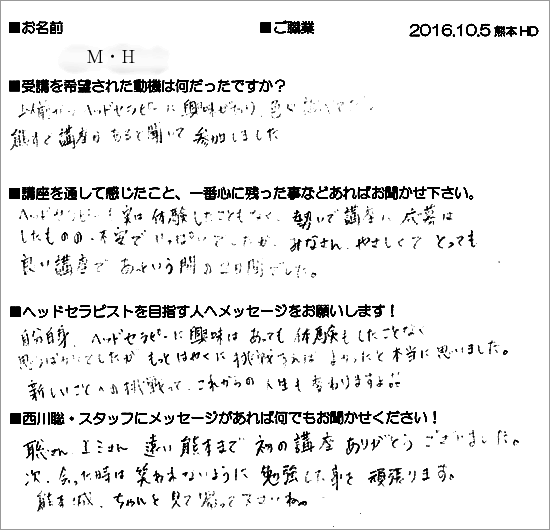 ■お名前 ■ご職業 2016.10.5 熊本HD
M・H
■受講を希望された動機は何だったですか？
以前から ヘッドセラピーに興味があり、色々
熊本で講座があると聞いて 参加しました
■講座を通して感じたこと、一番心に残った事などあればお聞かせ下さい。
ヘッドセラピーも実は体験したこともなく、勢いで講座に応募は
したものの、不安でいっぱいでしたが、みなさん、やさしくて とっても
良い講座で あっという間の2日間でした。
■ヘッドセラピストを目指す人へメッセージをお願いします！
自分自身、ヘッドセラピーに興味はあっても 体験もしたことなく
思うばかりでしたが もっとはやくに挑戦すれば よかったと本当に思いました。
新しいことへの挑戦って、これからの人生も変わりますよ
■西川聡・スタッフにメッセージがあれば何でもお聞かせください！
聡さん、エミさん 遠い熊本まで 初の講座 ありがとう ございました。
次、会った時は 笑われないように 勉強した事を 頑張ります。
熊本城、ちゃんと見て帰って下さいね。